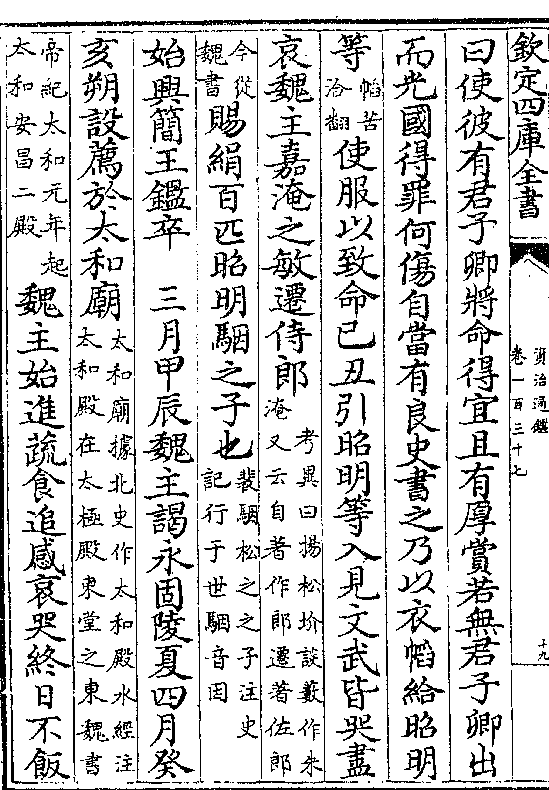 欽定四庫全書
資治通鑑
卷一百三十七
十九
曰使彼有君子卿將命得宜且有厚賞若無君子卿出
而光國得罪何傷自當有良史書之乃以衣㡊給昭明
等㡊苦洽翻使服以致命已丑引昭明等入見文武皆哭盡
哀魏主嘉淹之敏遷侍郎考異曰揚松玠談藪作朱淹又云自著作郎遷著佐郎
今從魏書賜絹百匹昭明駰之子也裴駰松之之子注史記行于世駰音因
始興簡王鑑卒　三月甲辰魏主謁永固陵夏四月癸
亥朔設薦於太和廟太和廟據北史作太和殿水經注太和殿在太極殿東堂之東魏書
帝紀太和元年起太和安昌二殿魏主始進蔬食追感哀哭終日不飯